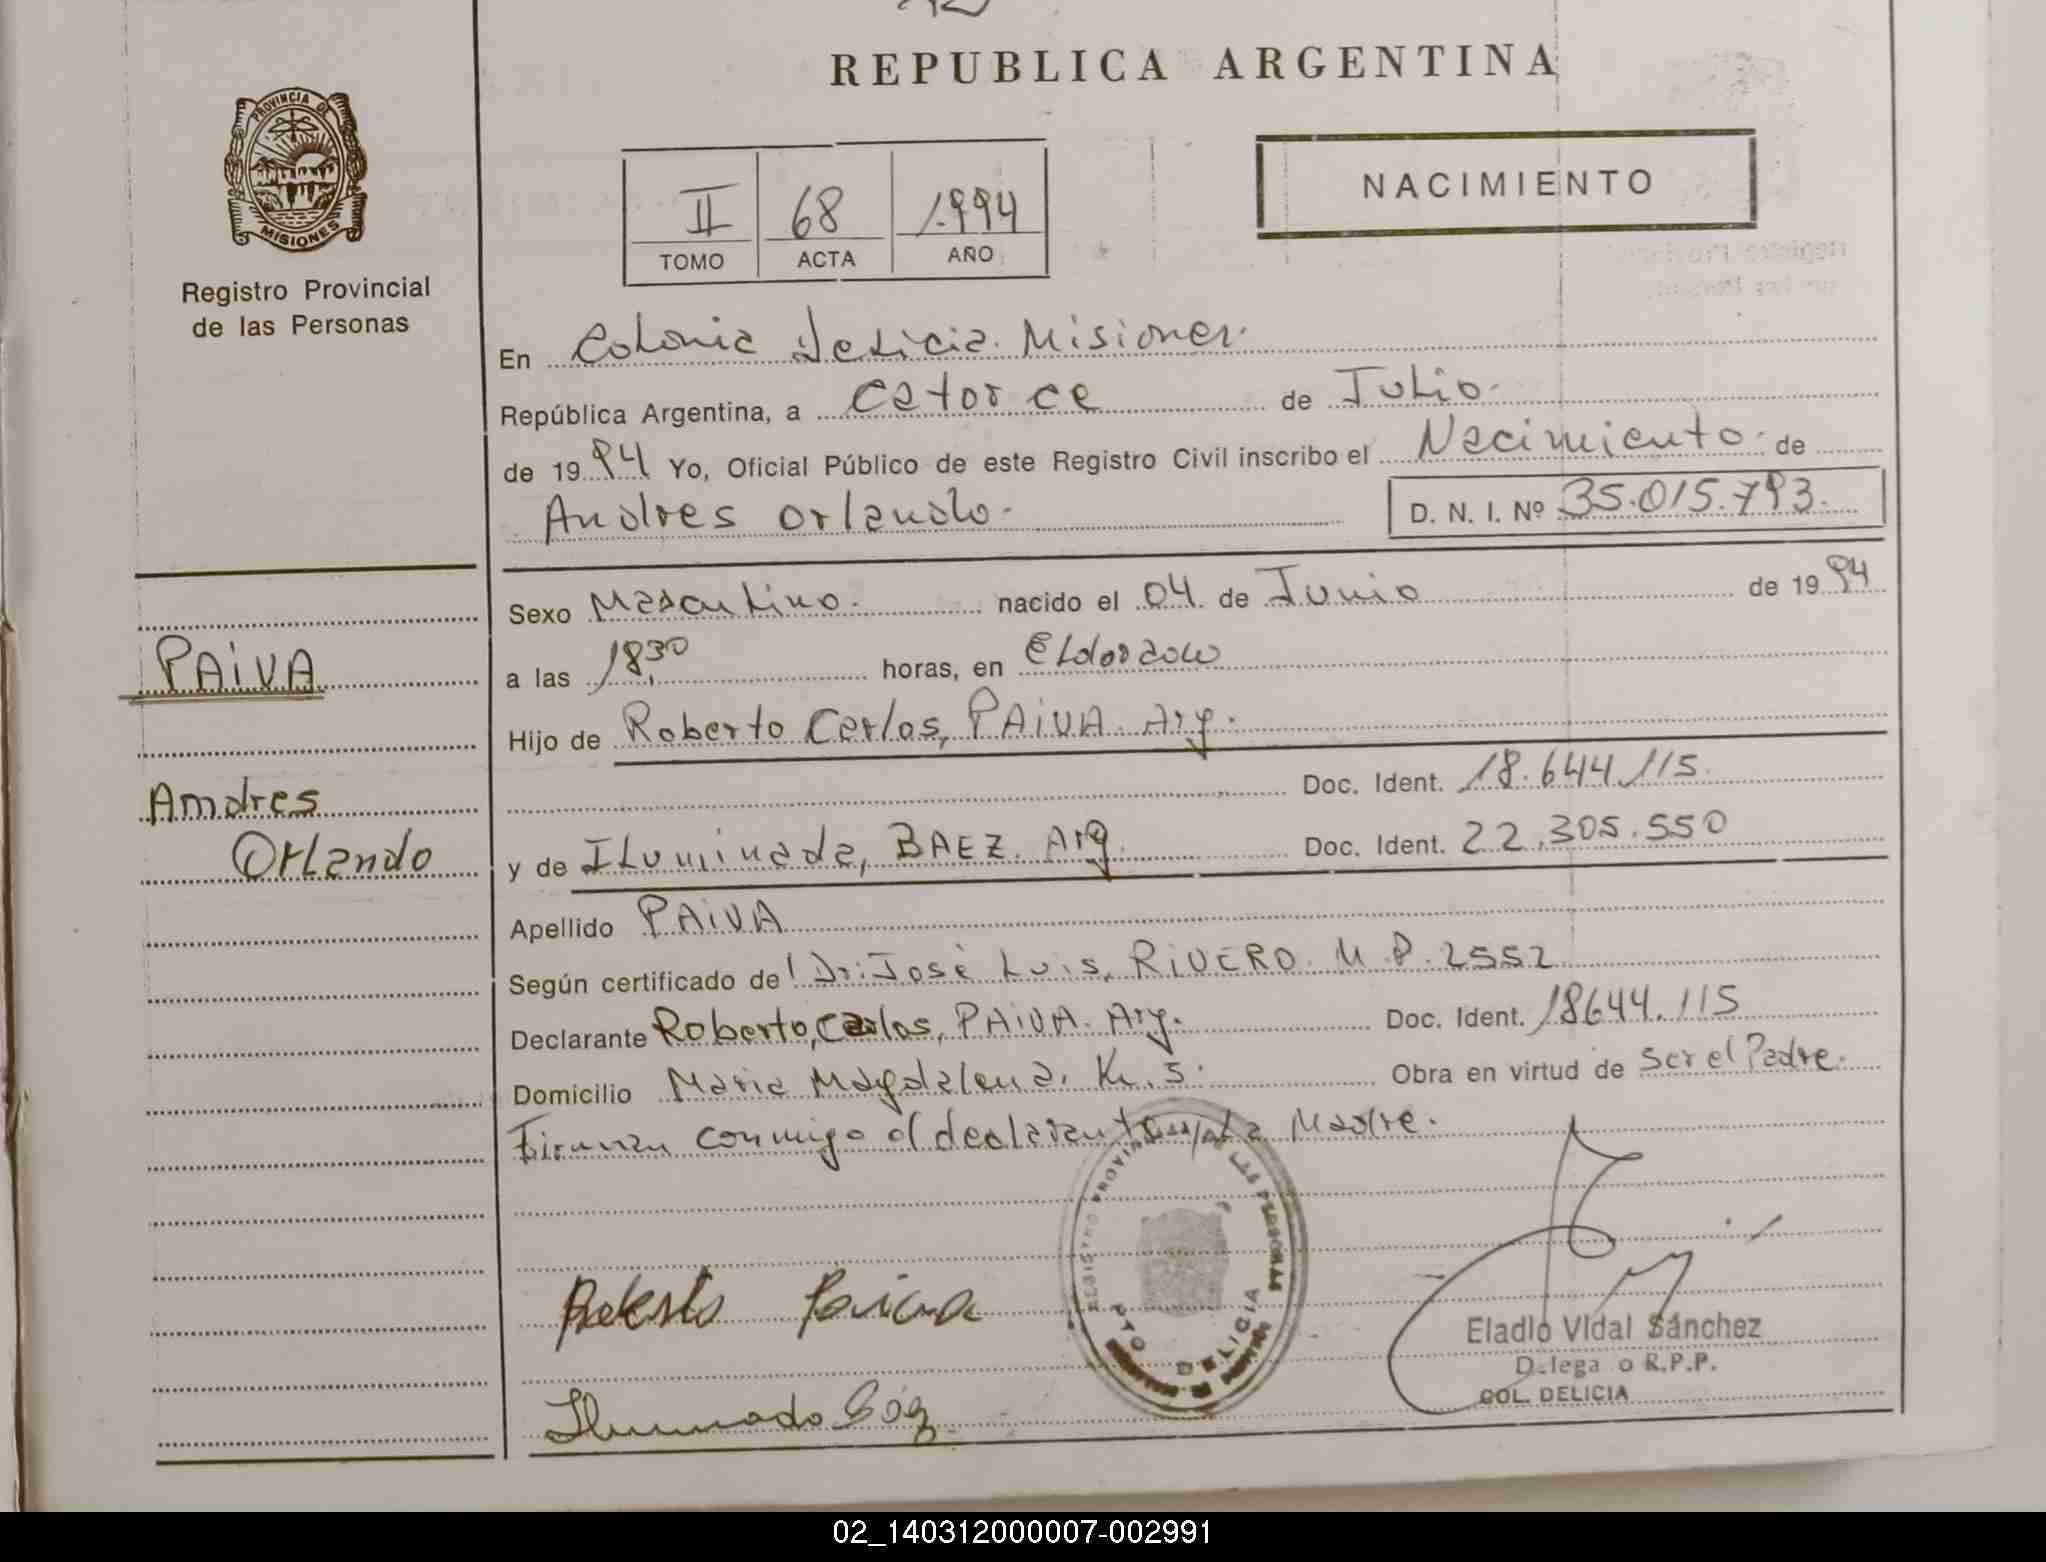 REPUBLICA ARGENTINA
PROVINCIA DE
MISIONES
Registro Provincial
de las Personas
II 68 1.994
TOMO ACTA AÑO
NACIMIENTO
En Colonia Delicia. Misiones.
República Argentina, a Catorce de Julio.
de 19 94 Yo, Oficial Público de este Registro Civil inscribo el Nacimiento. de
Andres Orlando. D. N. I. Nº 35.015.793.
Sexo Masculino. nacido el 04 de Junio de 19 94
PAiVA
a las 18,30 horas, en Eldorado
Hijo de Roberto Carlos, PAiVA. Arg.
Doc. Ident. 18.644.115.
Andres
Orlando
y de Iluminada, BAEZ. Arg. Doc. Ident. 22.305.550
Apellido PAiVA
Según certificado de Dr: José Luis, RiVERO. M.P. 2552
Declarante Roberto, Carlos, PAiVA. Arg. Doc. Ident. 18644.115
Domicilio Maria Magdalena. K. 5. Obra en virtud de Ser el Padre.
Firman conmigo el declarante y la Madre.
REGISTRO PROVINCIAL DE LAS PERSONAS
PTO DELICIA
Roberto Paiva
Iluminada Báez
Eladio Vidal Sánchez
Delegado R.P.P.
COL. DELICIA
02_140312000007-002991